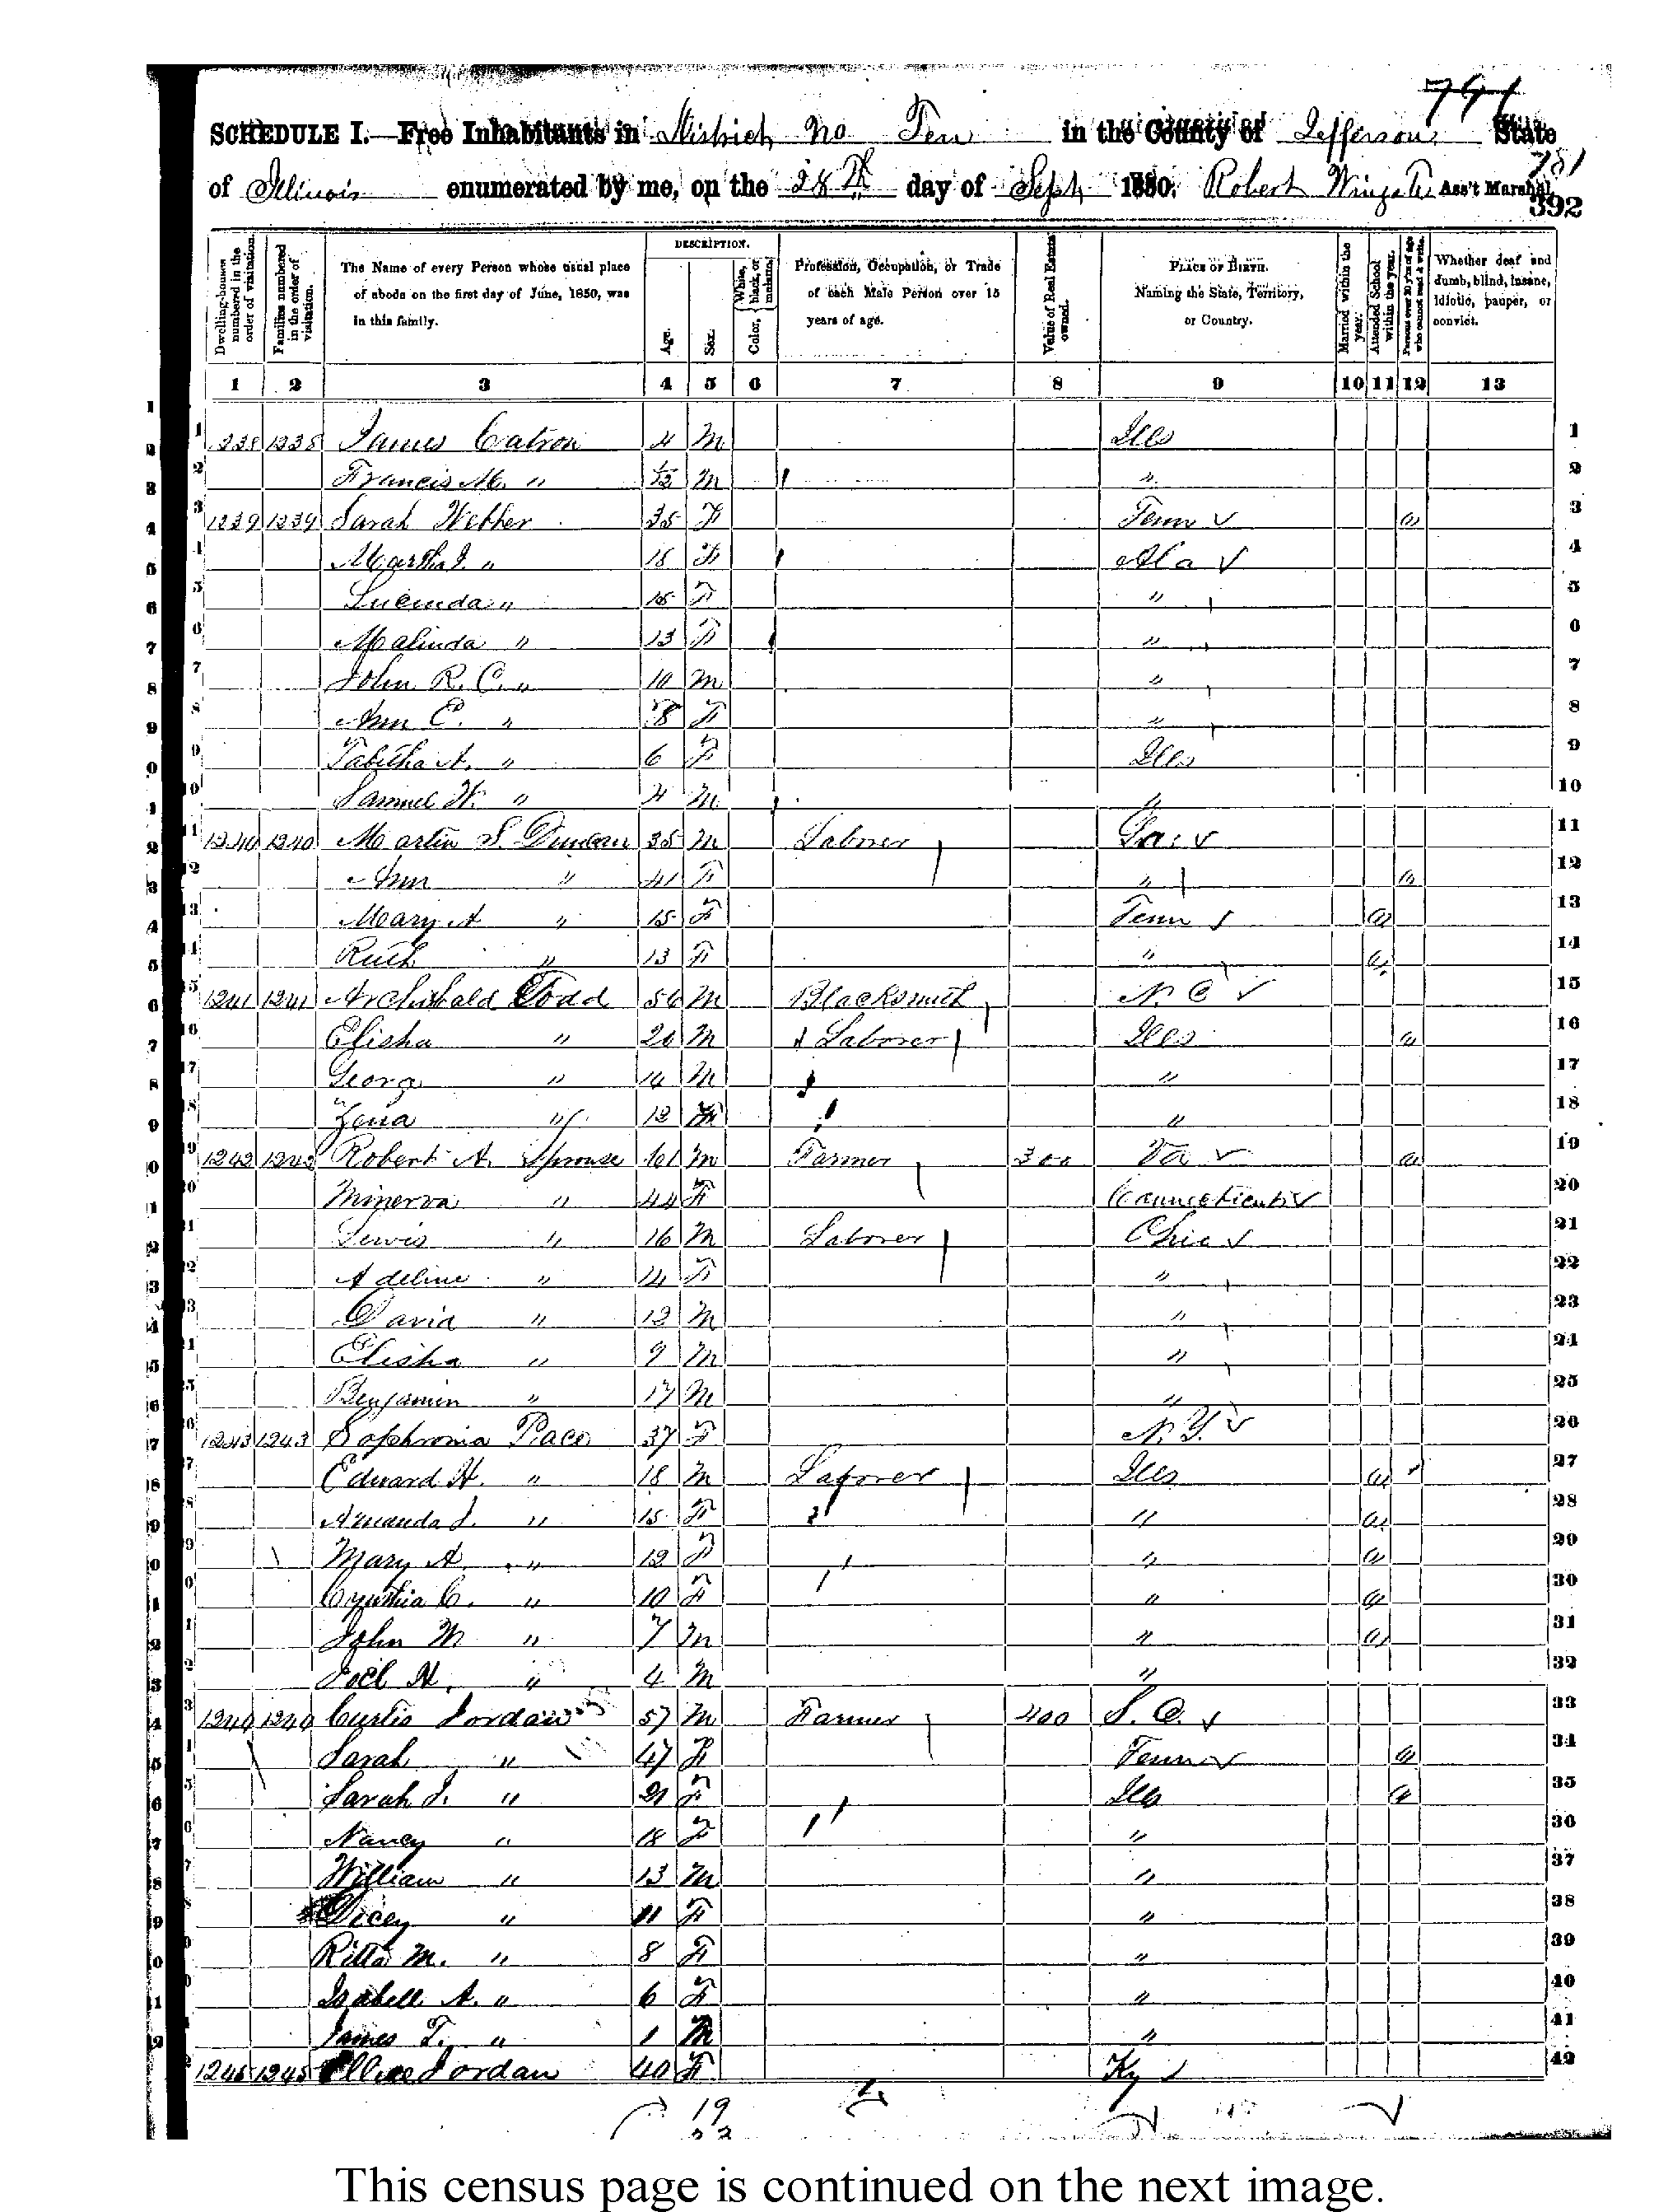 791
SCHEDULE I.—Free Inhabitants in District No Ten in the County of Jefferson State
781
of Illinois enumerated by me, on the 28th day of Sept 1850. Robert Wingate Ass't Marshal.
392
Dwelling-houses numbered in the order of visitation.
Families numbered in the order of visitation.
The Name of every Person whose usual place of abode on the first day of June, 1850, was in this family.
DESCRIPTION.
Age.
Sex.
Color, White, black, or mulatto.
Profession, Occupation, or Trade of each Male Person over 15 years of age.
Value of Real Estate owned.
PLACE OF BIRTH. Naming the State, Territory, or Country.
Married within the year.
Attended School within the year.
Persons over 20 y'rs of age who cannot read & write.
Whether deaf and dumb, blind, insane, idiotic, pauper, or convict.
1 2 3 4 5 6 7 8 9 10 11 12 13
1 1238 1238 James Catron 4 M Ills 1
2 Francis M. " M " 2
3 1239 1239 Sarah Webber 35 F Tenn 3
4 Martha J. " 18 F Ala 4
5 Lucinda " 15 F " 5
6 Malinda " 13 F " 6
7 John R. C. " 10 M " 7
8 Ann E. " 8 F " 8
9 Tabitha A. " 6 F Ills 9
10 Samuel W. " 4 M " 10
11 1240 1240 Martin S. Duncan 35 M Laborer 11
12 Ann " 41 F " 12
13 Mary A " 15 F Tenn 13
14 Ruth " 13 F " 14
15 1241 1241 Archibald Todd 56 M Blacksmith N. C 15
16 Elisha " 20 M Laborer Ills 16
17 Georg " 14 M " 17
18 Zena " 12 " 18
19 1242 1242 Robert A. Sprouse 61 M Farmer 300 Va 19
20 Minerva " 44 F Connecticut 20
21 Lewis " 16 M Laborer Ohio 21
22 Adeline " 14 F " 22
23 David " 12 M " 23
24 Elisha " 9 M " 24
25 Benjamin " 17 M " 25
26 1243 1243 Sophronia Pace 37 F N. Y. 26
27 Edward H. " 18 M Laborer Ills 27
28 Amanda J. " 15 F " 28
29 Mary A. " 12 F " 29
30 Cynthia C. " 10 F " 30
31 John M " 7 M " 31
32 Joel H. " 4 M " 32
33 1244 1244 Curtis Jordan 57 M Farmer 400 S. C. 33
34 Sarah " 47 F Tenn 34
35 Sarah J. " 21 F Ills 35
36 Nancy " 18 F " 36
37 William " 13 M " 37
38 Dicey " 11 F " 38
39 Ritta M. " 8 F " 39
40 Isabell A. " 6 F " 40
41 James T. " 1 M " 41
42 1245 1245 Jordan 40 F Ky 42
19
This census page is continued on the next image.